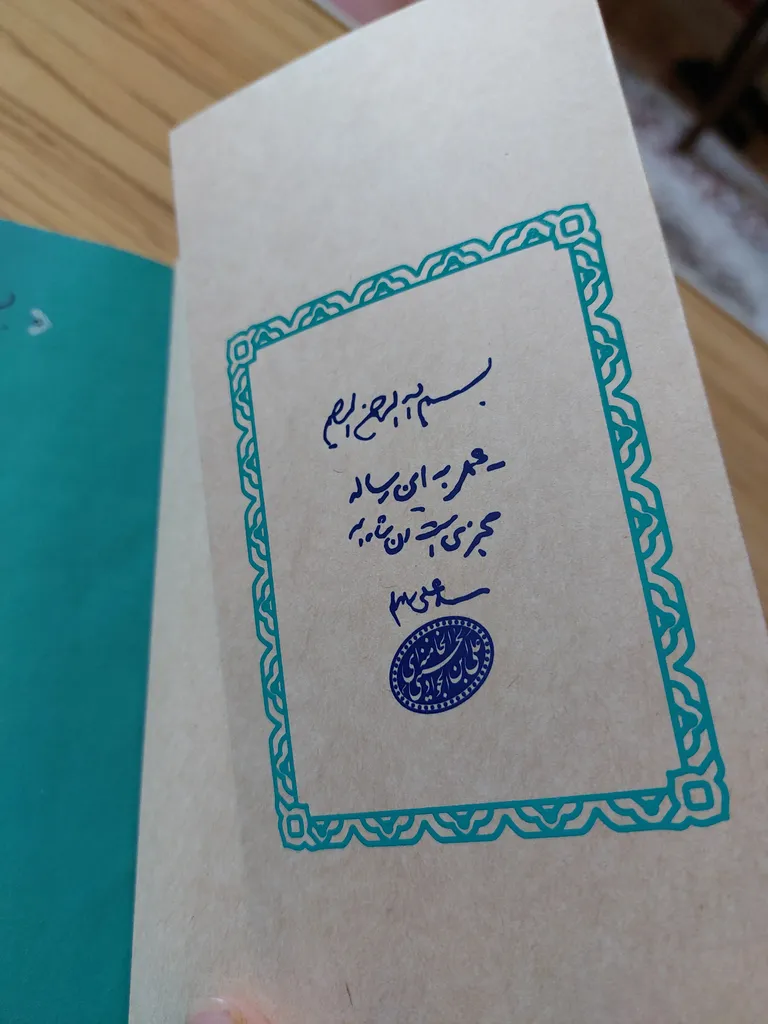 بسم الله الرحمن الرحیم
عمل به این رساله
مجزی است ان شاءالله
سید علی
علی بن الجواد الحسینی الخامنه‌ای